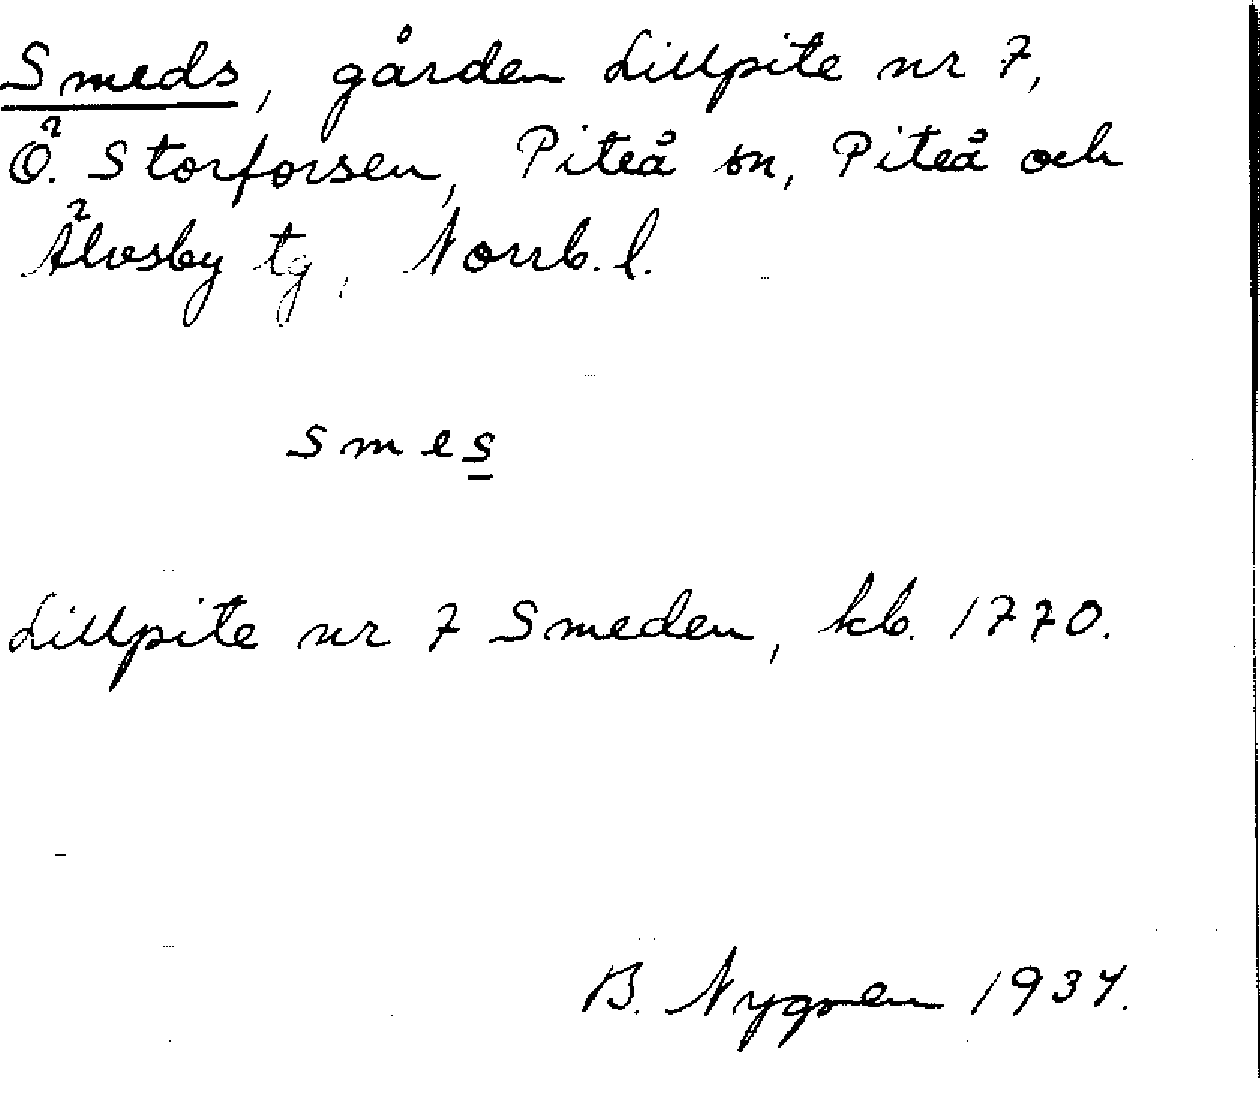 Smeds, gården Lillpite nr 7,
Ö. Storforsen, Piteå sn, Piteå och
Älvsby tg, Norrb. l.
smes
Lillpite nr 7 Smeden, kb. 1770.
B. Nygren 1937.